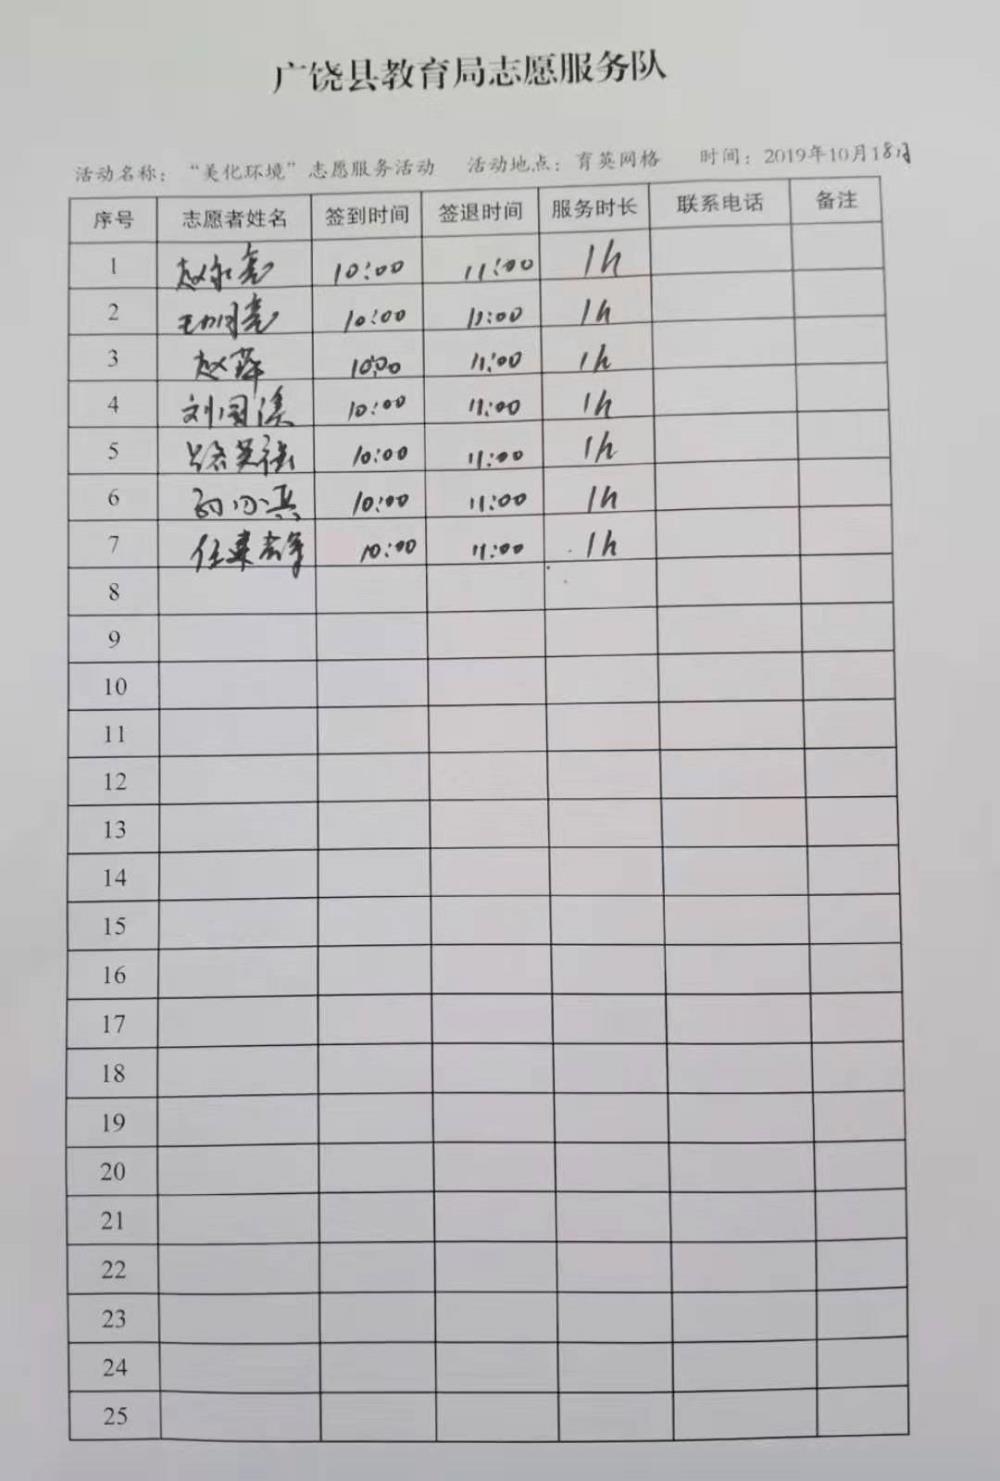 广饶县教育局志愿服务队
活动名称：“美化环境”志愿服务活动 活动地点：育英网格 时间：2019年10月18日
序号 志愿者姓名 签到时间 签退时间 服务时长 联系电话 备注
1 赵永亮 10:00 11:00 1h
2 10:00 11:00 1h
3 赵萍 10:00 11:00 1h
4 刘国溪 10:00 11:00 1h
5 10:00 11:00 1h
6 10:00 11:00 1h
7 任 10:00 11:00 1h
8
9
10
11
12
13
14
15
16
17
18
19
20
21
22
23
24
25